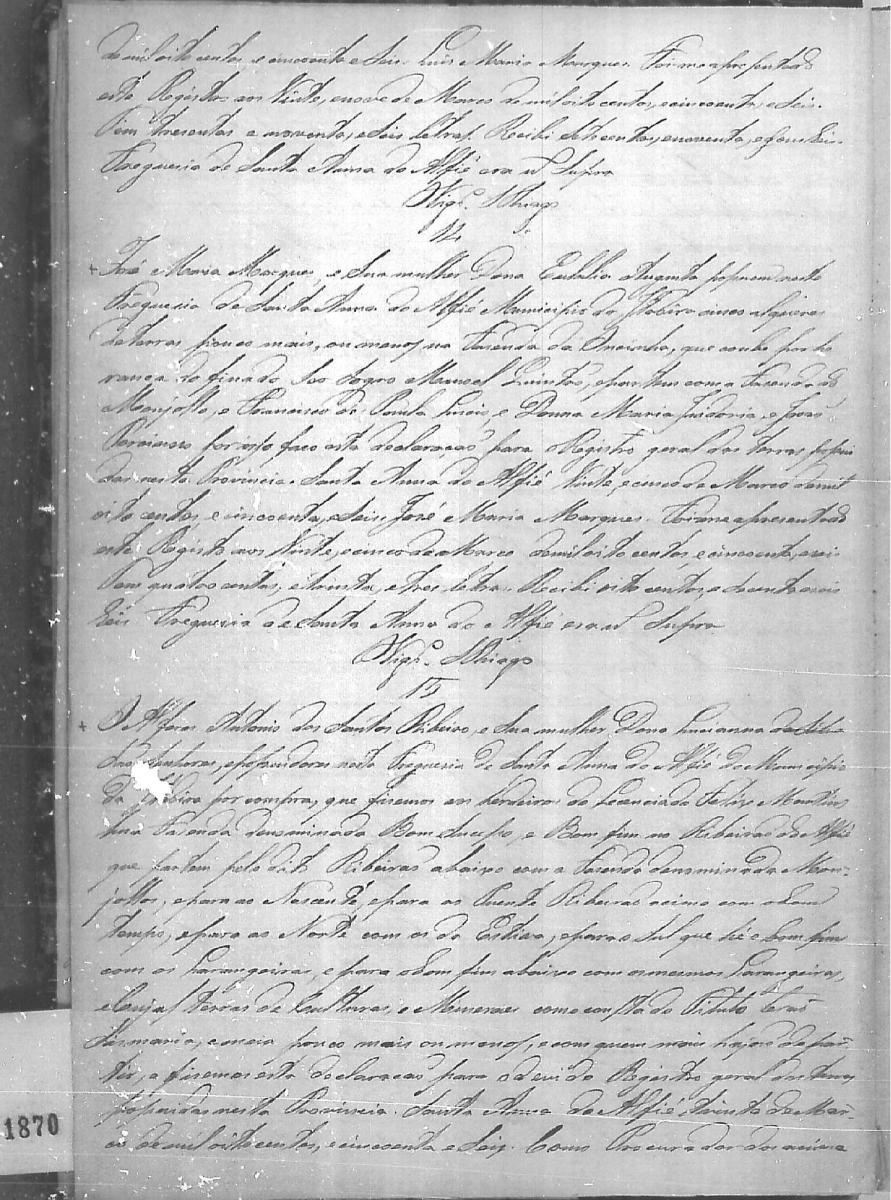 de mil oito centos, e cincoenta e Seis. Luis Maria Marques. Foi me apresentado
este Registro aos Vinte, e nove de Março de mil oito centos, e cincoenta, e Seis.
Tem tresentas e noventa, e Seis letras. Recibi sete centos, e noventa, e
Freguesia de Santa Anna do Alfié era ut Supra
Vigr.º Thiago
14
+ José Maria Marques, e Sua mulher Dona Eulalia Augusta possuem neste
Freguesia de Santa Anna do Alfié Municipio da Itabira cinco alqueires
de terras pouco mais, ou menos na Fasenda da Oncinha, que coube por he
rança do finado Seo Sogro Manoel Quintão, e partem com a Fasenda do
Monjollo, e Francisco de Paula Luis, e Donna Maria Izidoria, e João
por isso faço esta declaração para o Registro geral das terras possui
das nesta Provincia. Santa Anna do Alfié Vinte, e cinco de Março de mil
oito centos e cincoenta, e Seis José Maria Marques. Foi me apresentado
este Registo aos Vinte, e cinco de Março de mil oito centos e cincoenta, e seis
Tem quatro centas, e trinta, e tres letras. Recibi oito centos e secenta e seis
Reis Freguesia de Santa Anna do Alfié era ut Supra
Vigr.º Thiago
15
+ O Alferes Antonio dos Santos Ribeiro, e Sua mulher Dona Lucianna da Silva
e possuidores nesta Freguesia de Santa Anna do Alfié do Municipio
da Itabira por compra, que fisemos aos herdeiros do Licenciado Felix Martins
hua Fasenda denominada Bom Sucesso, e Bom fim no Ribeirão do Alfié
que partem pelo dito Ribeirão abaixo com a Fasenda denominada Mon-
jollos, e para ao Nascente, e para ao Puente Ribeirão acima com o bom
tempo, e para ao Norte com os da Estiva, e para o Sul que hé o bom fim
com os Larangeiras, e para o bom fim abaixo com os mesmos Larangeiras,
e cujas terras de Culturas, e Mineraes como consta do Titulo terão
Sismaria, e meia pouco mais ou menos, e com quem mais hajão de par-
tir, e fisemos esta declaração para o devido Registro geral das terras
possuidas nesta Provincia. Santa Anna do Alfié, trinta de Mar-
ço de mil oito centos, e cincoenta e Seis. Como Procurador dos acima
1870